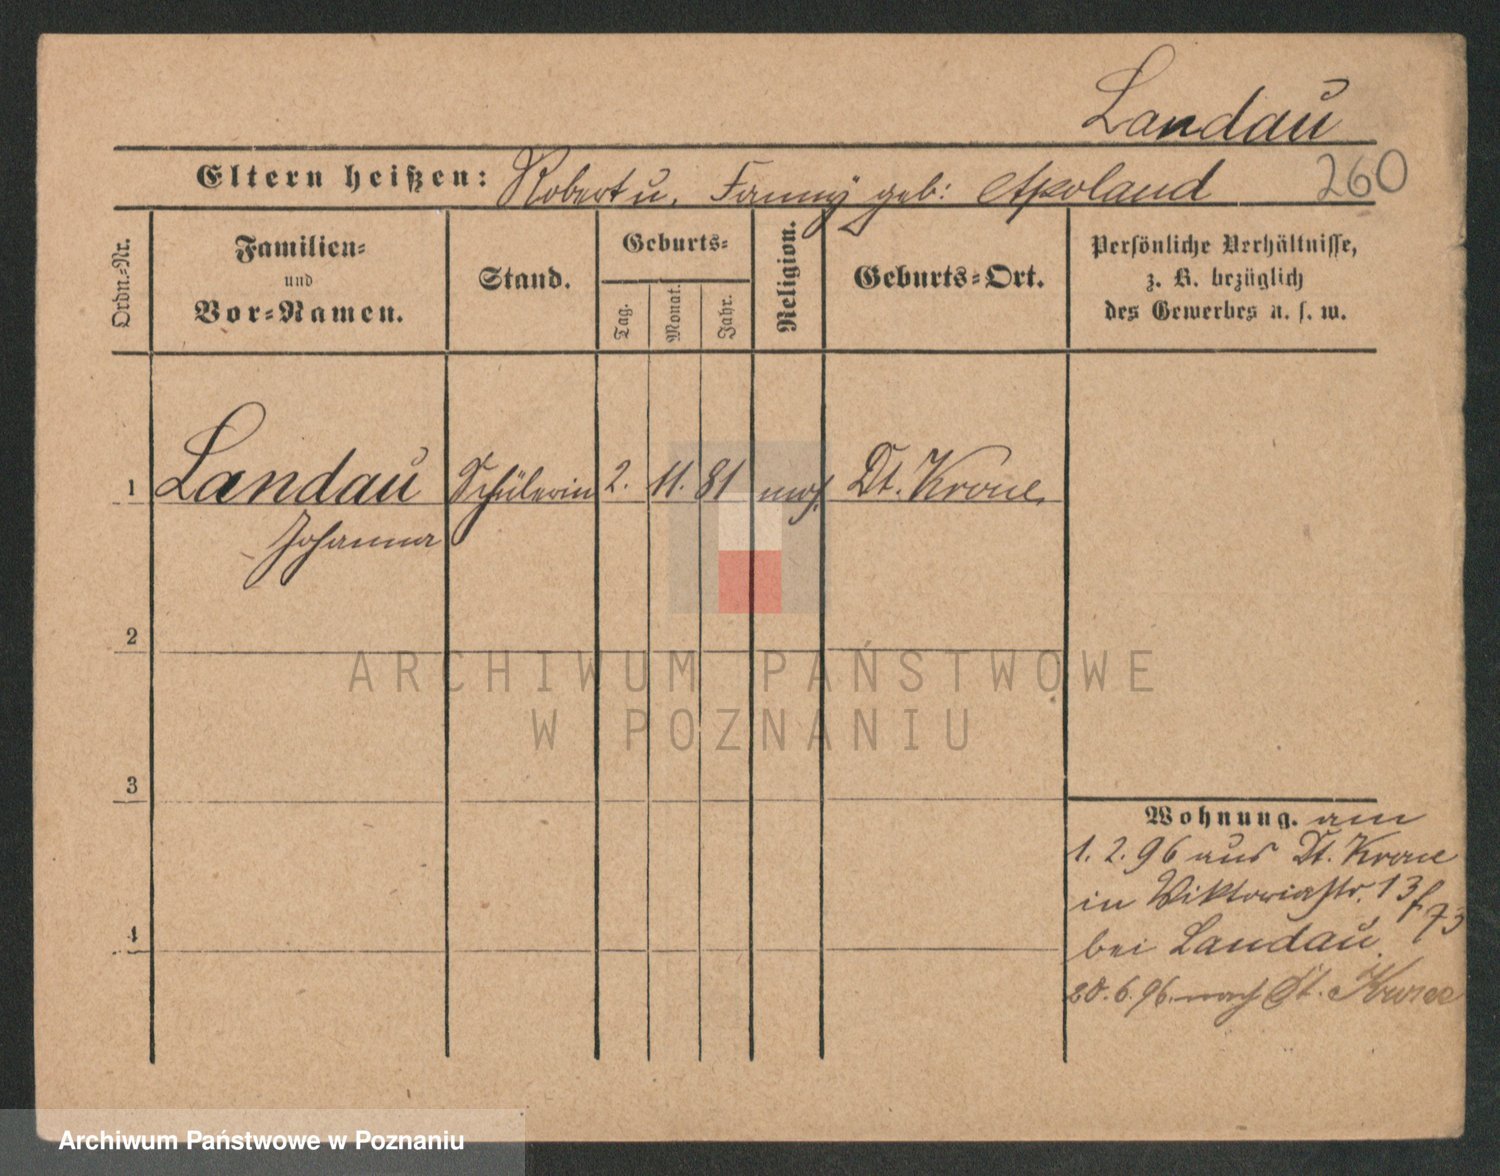 Landau
260
Eltern heißen: Robert u. Fanny geb: Apoland
Ordn.=Nr.
Familien=
und
Vor=Namen.
Stand.
Geburts=
Tag.
Monat.
Jahr.
Religion.
Geburts=Ort.
Persönliche Verhältnisse,
z. B. bezüglich
des Gewerbes u. s. w.
1 Landau Schülerin 2. 11. 81 mos. Dt. Krone
Johanna
2
ARCHIWUM PAŃSTWOWE
W POZNANIU
3
4
Wohnung. am
1. 2. 96 aus Dt. Krone
in Viktoriastr. 13
bei Landau.
28. 6. 96. nach Dt. Krone
Archiwum Państwowe w Poznaniu